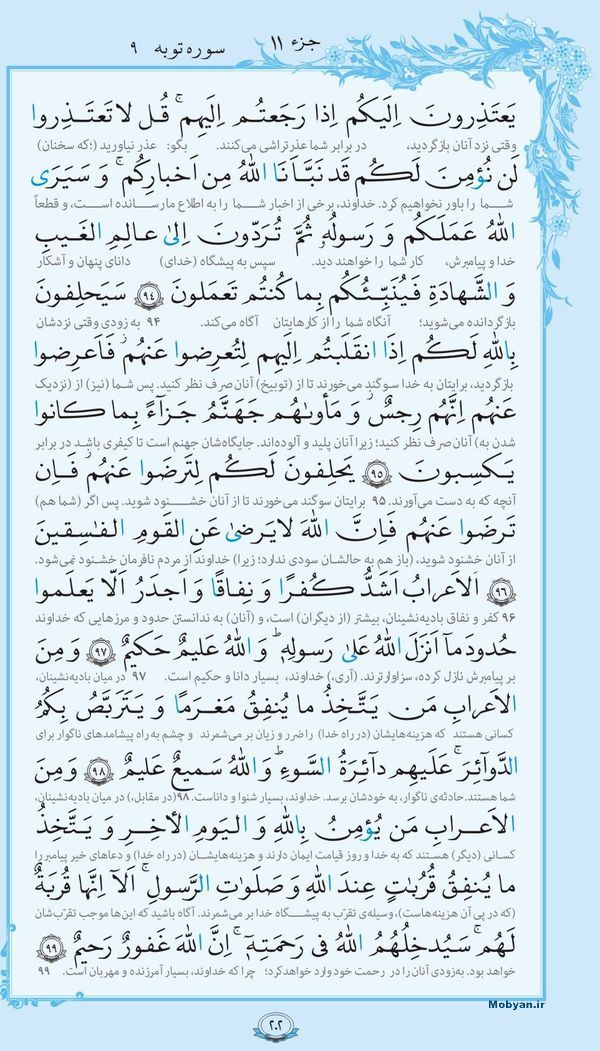 جزء ۱۱
سوره توبه ۹
يَعتَذِرونَ اِلَيكُم اِذا رَجَعتُم اِلَيهِم ۚ قُل لا تَعتَذِروا
وقتی نزد آنان بازگردید، در برابر شما عذرتراشی می‌کنند. بگو: عذر نیاورید (؛که سخنان)
لَن نُؤمِنَ لَكُم قَد نَبَّاَنَا اللهُ مِن اَخبارِكُم ۚ وَ سَيَرَى
شما را باور نخواهیم کرد. خداوند، برخی از اخبار شما را به اطلاع ما رسانده است، و قطعاً
اللهُ عَمَلَكُم وَ رَسولُهٗ ثُمَّ تُرَدّونَ اِلىٰ عالِمِ الغَيبِ
خدا و پیامبرش، کار شما را خواهند دید. سپس به پیشگاه (خدای) دانای پنهان و آشکار
وَ الشَّهادَةِ فَيُنَبِّئُكُم بِما كُنتُم تَعمَلونَ ﴿۹۴﴾ سَيَحلِفونَ
بازگردانده می‌شوید؛ آنگاه شما را از کارهایتان آگاه می‌کند. ۹۴ به زودی وقتی نزدشان
بِاللهِ لَكُم اِذَا انقَلَبتُم اِلَيهِم لِتُعرِضوا عَنهُم ۖ فَاَعرِضوا
بازگردید، برایتان به خدا سوگند می‌خورند تا از (توبیخ) آنان صرف نظر کنید. پس شما (نیز) از (نزدیک
عَنهُم اِنَّهُم رِجسٌ ۖ وَ مَأوىٰهُم جَهَنَّمُ جَزآءً بِما كانوا
شدن به) آنان صرف نظر کنید؛ زیرا آنان پلید و آلوده‌اند. جایگاه‌شان جهنم است تا کیفری باشد در برابر
يَكسِبونَ ﴿۹۵﴾ يَحلِفونَ لَكُم لِتَرضَوا عَنهُم ۖ فَاِن
آنچه که به دست می‌آورند. ۹۵ برایتان سوگند می‌خورند تا از آنان خشنود شوید. پس اگر (شما هم)
تَرضَوا عَنهُم فَاِنَّ اللهَ لا يَرضىٰ عَنِ القَومِ الفٰسِقينَ
از آنان خشنود شوید، (باز هم به حالشان سودی ندارد؛ زیرا) خداوند از مردم نافرمان خشنود نمی‌شود.
﴿۹۶﴾ اَلاَعرابُ اَشَدُّ كُفرًا وَ نِفاقًا وَ اَجدَرُ اَلّا يَعلَموا
۹۶ کفر و نفاق بادیه‌نشینان، بیشتر (از دیگران) است، و (آنان) به ندانستن حدود و مرزهایی که خداوند
حُدودَ مآ اَنزَلَ اللهُ عَلىٰ رَسولِهٖ ۗ وَ اللهُ عَليمٌ حَكيمٌ ﴿۹۷﴾ وَ مِنَ
بر پیامبرش نازل کرده، سزاوارترند. (آری،) خداوند، بسیار دانا و حکیم است. ۹۷ در میان بادیه‌نشینان،
الاَعرابِ مَن يَتَّخِذُ ما يُنفِقُ مَغرَمًا وَ يَتَرَبَّصُ بِكُمُ
کسانی هستند که هزینه‌هایشان (در راه خدا) را ضرر و زیان بر می‌شمرند و چشم به راه پیشامدهای ناگوار برای
الدَّوآئِرَ ۚ عَلَيهِم دآئِرَةُ السَّوءِ ۗ وَ اللهُ سَميعٌ عَليمٌ ﴿۹۸﴾ وَ مِنَ
شما هستند. حادثه‌ی ناگوار، به خودشان برسد. خداوند، بسیار شنوا و داناست. ۹۸ (در مقابل،) در میان بادیه‌نشینان،
الاَعرابِ مَن يُؤمِنُ بِاللهِ وَ اليَومِ الأخِرِ وَ يَتَّخِذُ
کسانی (دیگر) هستند که به خدا و روز قیامت ایمان دارند و هزینه‌هایشان (در راه خدا) و دعاهای خیر پیامبر را
ما يُنفِقُ قُرُباتٍ عِندَ اللهِ وَ صَلَواتِ الرَّسولِ ۚ اَلآ اِنَّها قُربَةٌ
(که در پی آن هزینه‌هاست)، وسیله‌ی تقرّب به پیشگاه خدا بر می‌شمرند. آگاه باشید که این‌ها موجب تقرّب‌شان
لَهُم ۚ سَيُدخِلُهُمُ اللهُ فى رَحمَتِهٖ ۗ اِنَّ اللهَ غَفورٌ رَحيمٌ ﴿۹۹﴾
خواهد بود. به‌زودی آنان را در رحمت خود وارد خواهد کرد؛ چرا که خداوند، بسیار آمرزنده و مهربان است. ۹۹
۲۰۲
Mobyan.ir